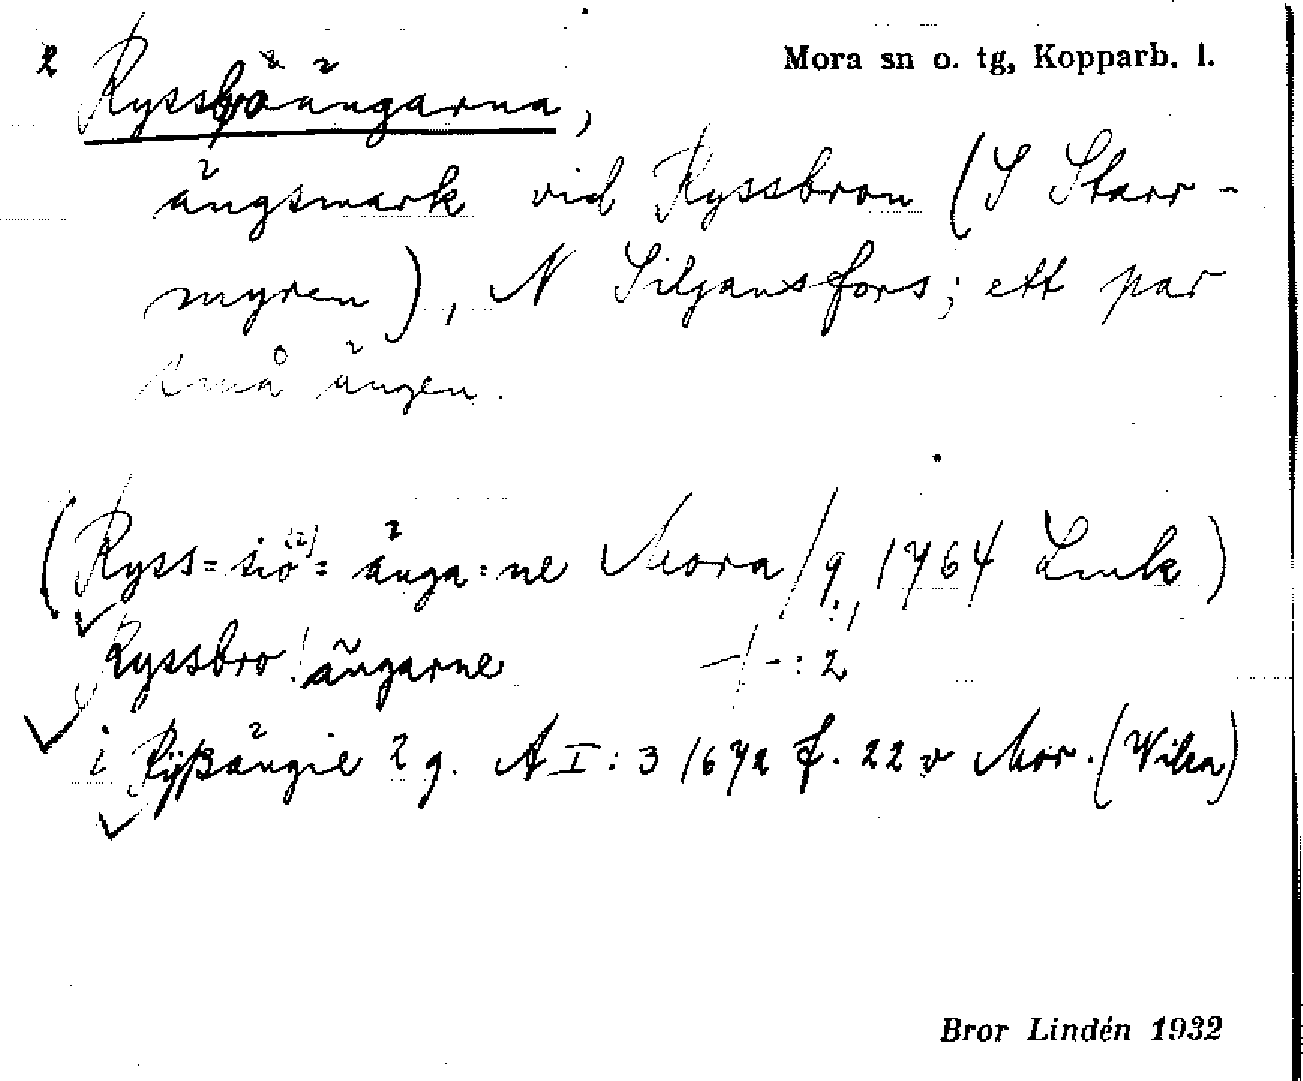 2 Mora sn o. tg, Kopparb. l.
Ryssbroängarna,
ängsmark vid Ryssbron (S Starr-
myren), N Siljansfors; ett par
små ängen.
(Ryss=siö(?)=änga=ne Mora/9:, 1764 Link)
Ryssbro!ängarne -/-:2
i Rÿßängie 2 g. A I:3 1672 f. 22 v Mor. (Vika)
Bror Lindén 1932